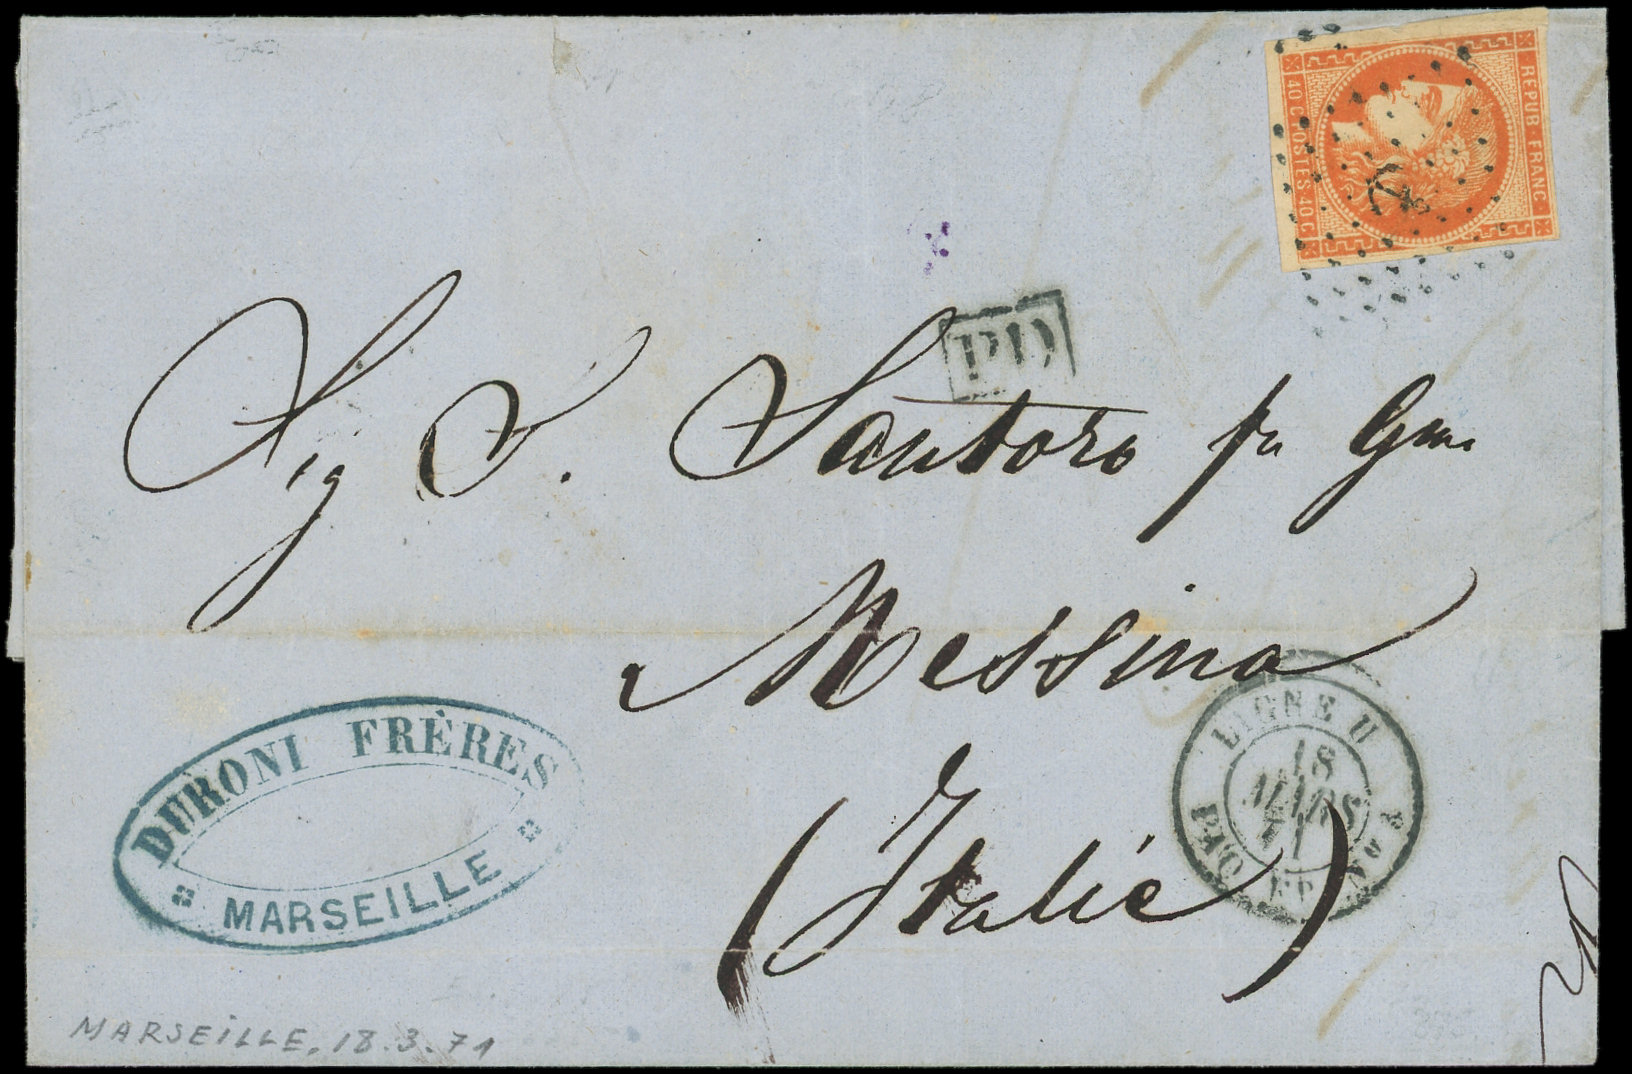 REPUB. FRANC.
40 C POSTES 40 C
PD
Sig S. Santoro fu Gme
Messina
(Italie)
DURONI FRÈRES
MARSEILLE
LIGNE U
18
MARS
71
PAQ. FR. No
MARSEILLE, 18.3.71